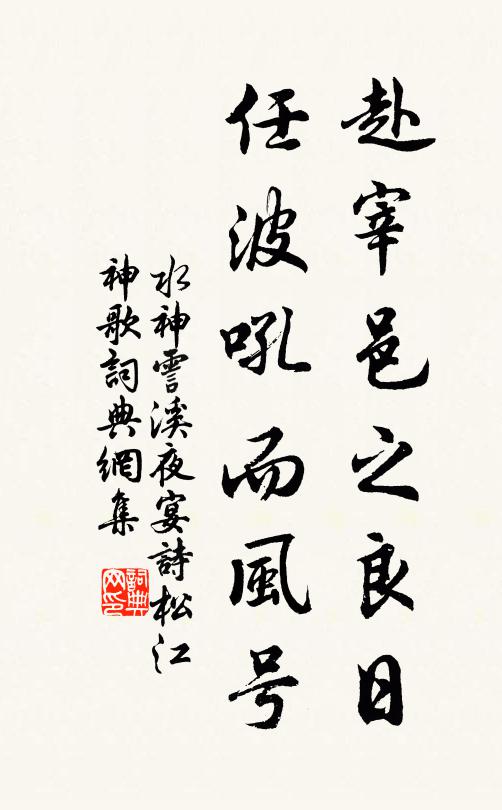 赴宰邑之良日
任波吼而風号
水神雪溪夜宴詩松江
神歌詞典網集
詞典网印